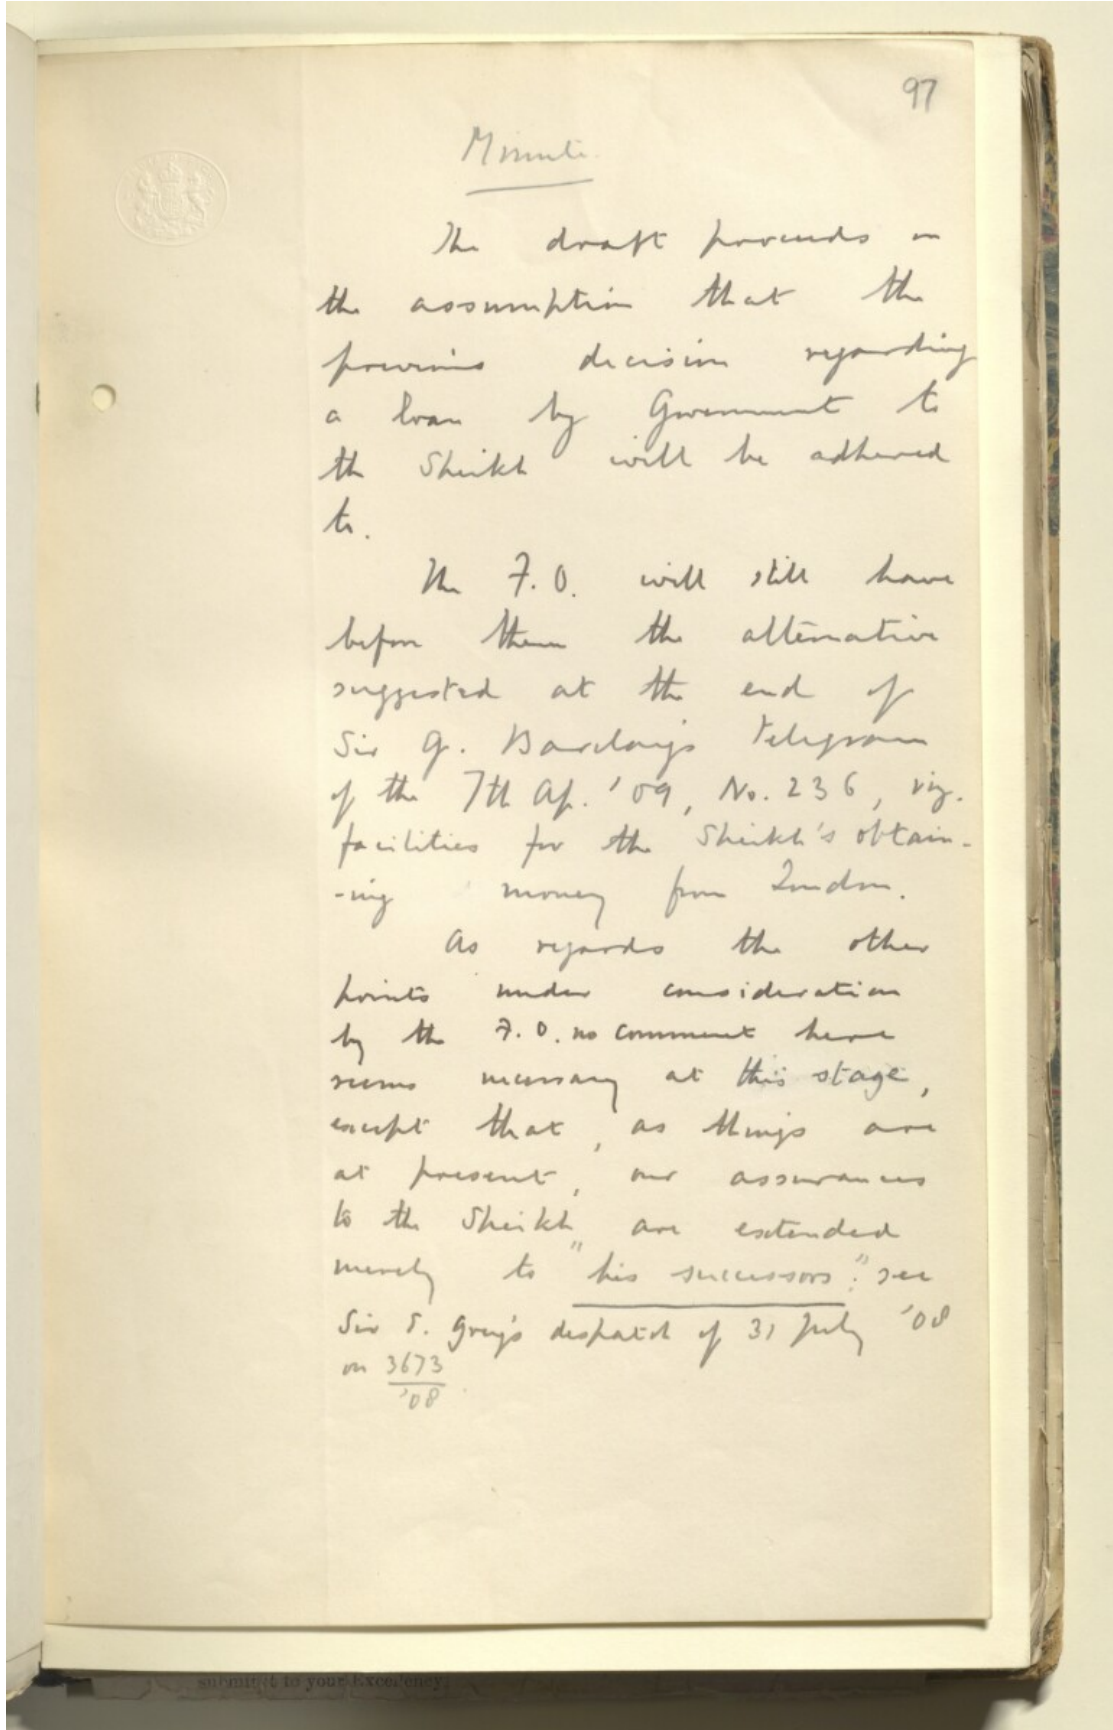 97
Minute
The draft proceeds on
the assumption that the
previous decision regarding
a loan by Government to
the Sheikh will be adhered
to.
The F.O. will still have
before them the alternative
suggested at the end of
Sir G. Barclay's telegram
of the 7th Ap. '09, No. 236, viz.
facilities for the Sheikh's obtain-
-ing money from London.
As regards the other
points under consideration
by the F.O. no comment here
seems necessary at this stage,
except that, as things are
at present, our assurances
to the Sheikh are extended
merely to "his successors": see
Sir E. Grey's dispatch of 31 July '08
on 3673
'08
submit to your Excellency